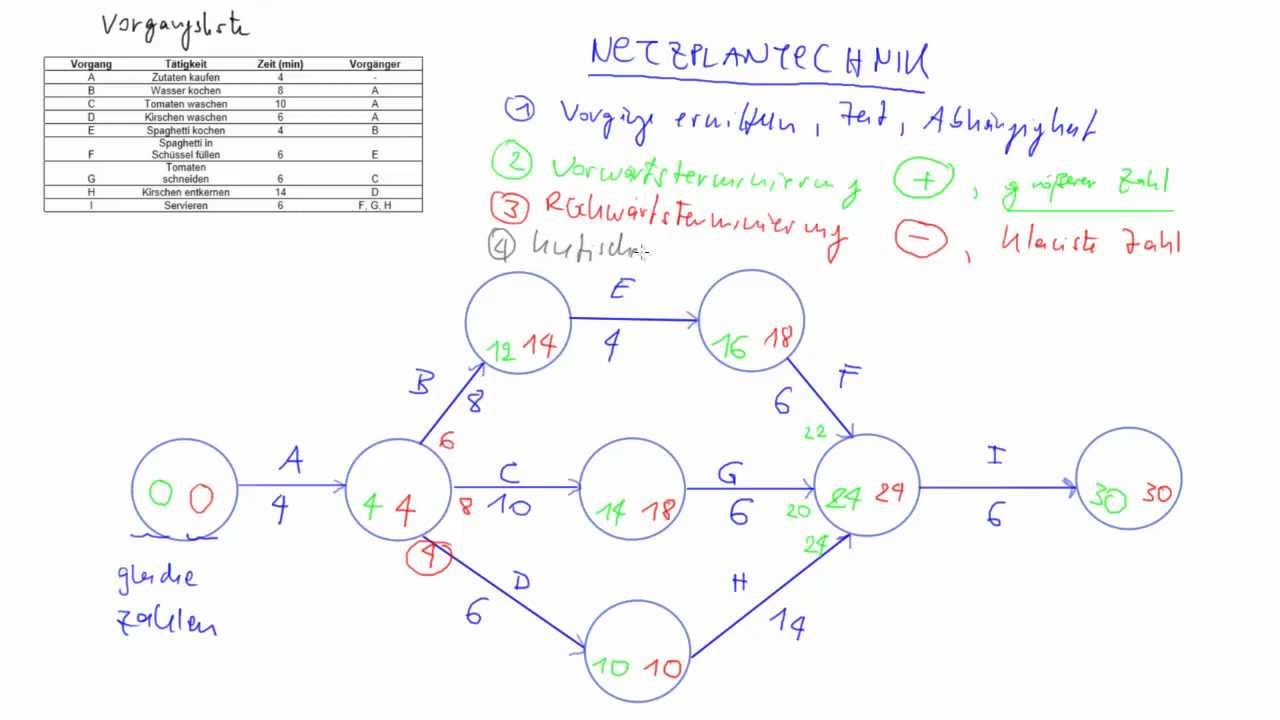 Vorgangsliste
Vorgang Tätigkeit Zeit (min) Vorgänger
A Zutaten kaufen 4 -
B Wasser kochen 8 A
C Tomaten waschen 10 A
D Kirschen waschen 6 A
E Spaghetti kochen 4 B
F Spaghetti in Schüssel füllen 6 E
G Tomaten schneiden 6 C
H Kirschen entkernen 14 D
I Servieren 6 F, G, H
NETZPLANTECHNIK
1 Vorgänge ermitteln, Zeit, Abhängigkeit
2 Vorwärtsterminierung +, größerer Zahl
3 Rückwärtsterminierung -, kleinste Zahl
4 kritisch
E
4
12 14
16 18
B
8
F
6
6
22
A
4
0 0
4 4
8
C
10
14 18
G
6
20
24 24
I
6
30 30
4
24
D
6
H
14
10 10
gleiche
Zahlen